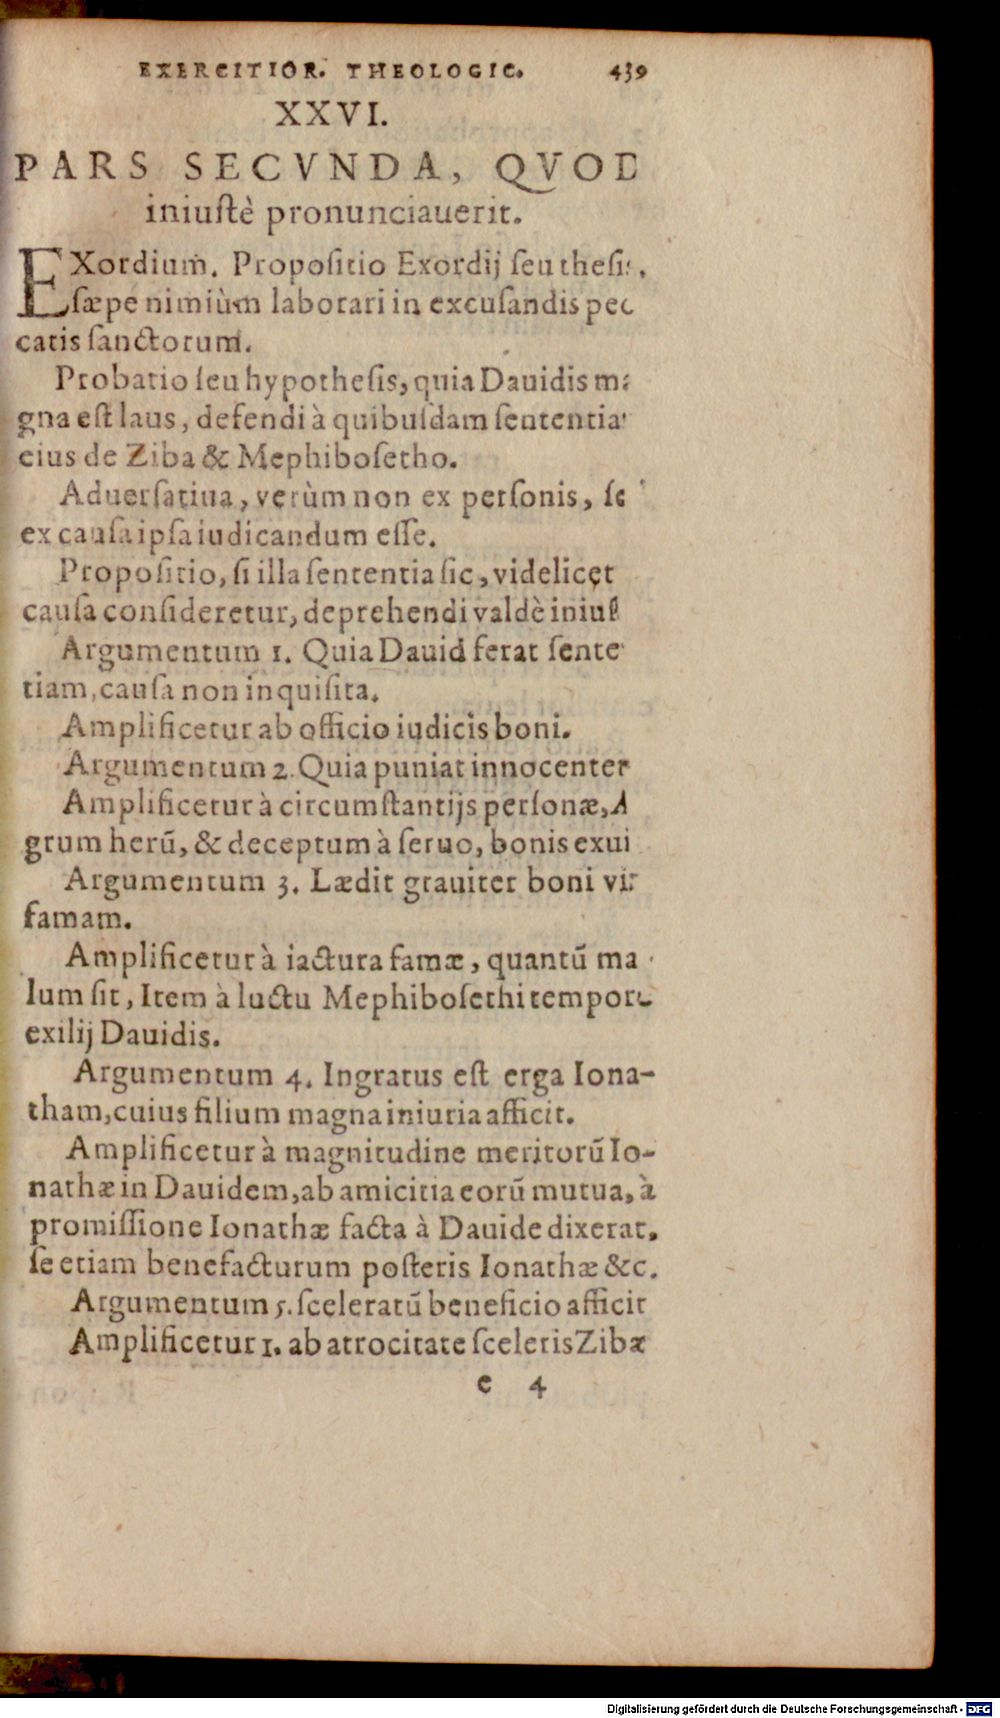 EXERCITIOR. THEOLOGIC. 439
XXVI.
PARS SECVNDA, QVOD
iniustè pronunciauerit.
EXordium. Propositio Exordij seu thesis,
sæpe nimiùm laborari in excusandis pec
catis sanctorum.
Probatio seu hypothesis, quia Dauidis ma
gna est laus, defendi à quibusdam sententia
eius de Ziba & Mephibosetho.
Aduersatiua, verùm non ex personis, se
ex causa ipsa iudicandum esse.
Propositio, si illa sententia sic, videlicet
causa consideretur, deprehendi valdè iniust
Argumentum 1. Quia Dauid ferat sente
tiam, causa non inquisita.
Amplificetur ab officio iudicis boni.
Argumentum 2. Quia puniat innocentem
Amplificetur à circumstantijs personæ, A
grum herū, & deceptum à seruo, bonis exui
Argumentum 3. Lædit grauiter boni vir
famam.
Amplificetur à iactura famæ, quantū ma
lum sit, Item à luctu Mephibosethi tempore
exilij Dauidis.
Argumentum 4. Ingratus est erga Iona-
tham, cuius filium magna iniuria afficit.
Amplificetur à magnitudine meritorū Io-
nathæ in Dauidem, ab amicitia eorū mutua, à
promissione Ionathæ facta à Dauide dixerat,
se etiam benefacturum posteris Ionathæ &c.
Argumentum 5. sceleratū beneficio afficit
Amplificetur 1. ab atrocitate sceleris Zibæ
e 4
Digitalisierung gefördert durch die Deutsche Forschungsgemeinschaft - DFG